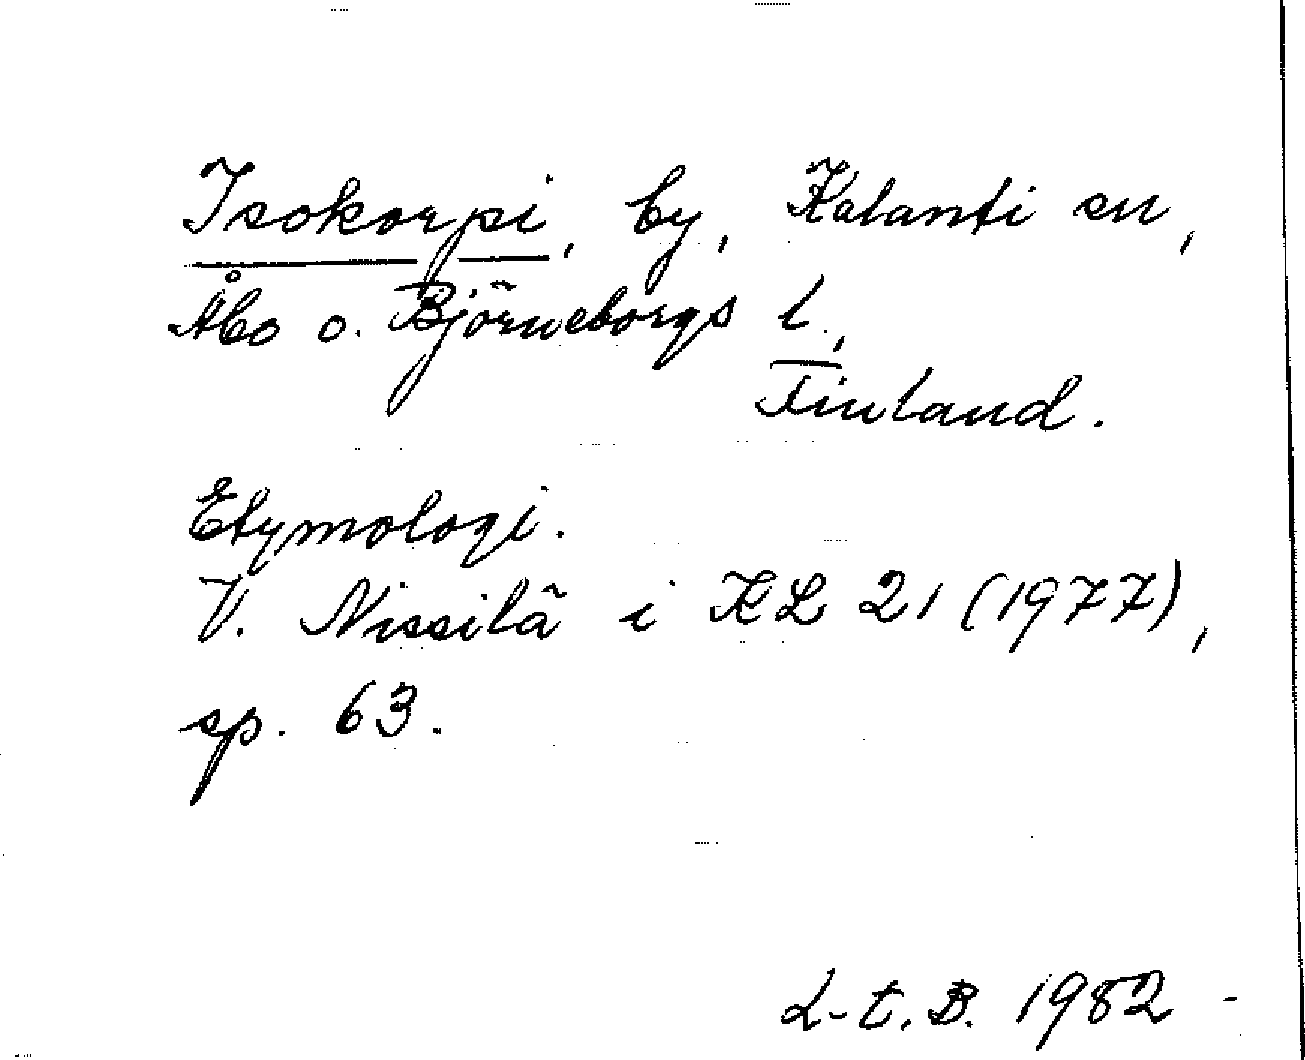 Isokorpi, by, Kalanti sn,
Åbo o. Björneborgs l.,
Finland.
Etymologi.
V. Nissilä i KL 21 (1977),
sp. 63.
L-t. B. 1982